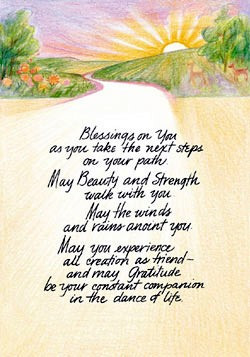 Blessings on You
as you take the next steps
on your path
May Beauty and Strength
walk with you
May the winds
and rains anoint you.
May you experience
all creation as friend—
and may Gratitude
be your constant companion
in the dance of life.